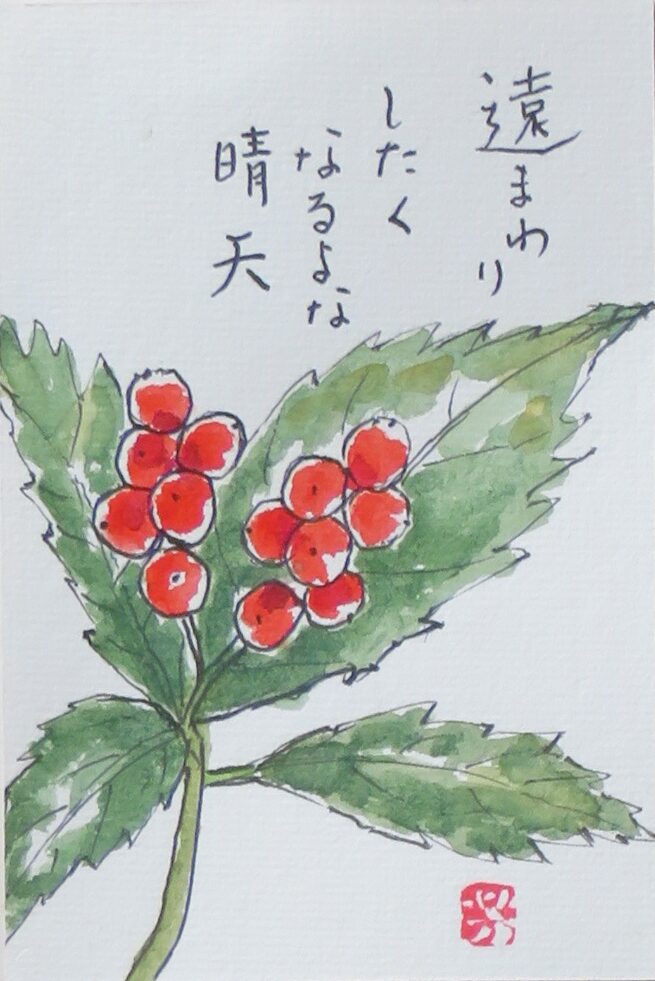 遠まわり
したく
なるよな
晴天